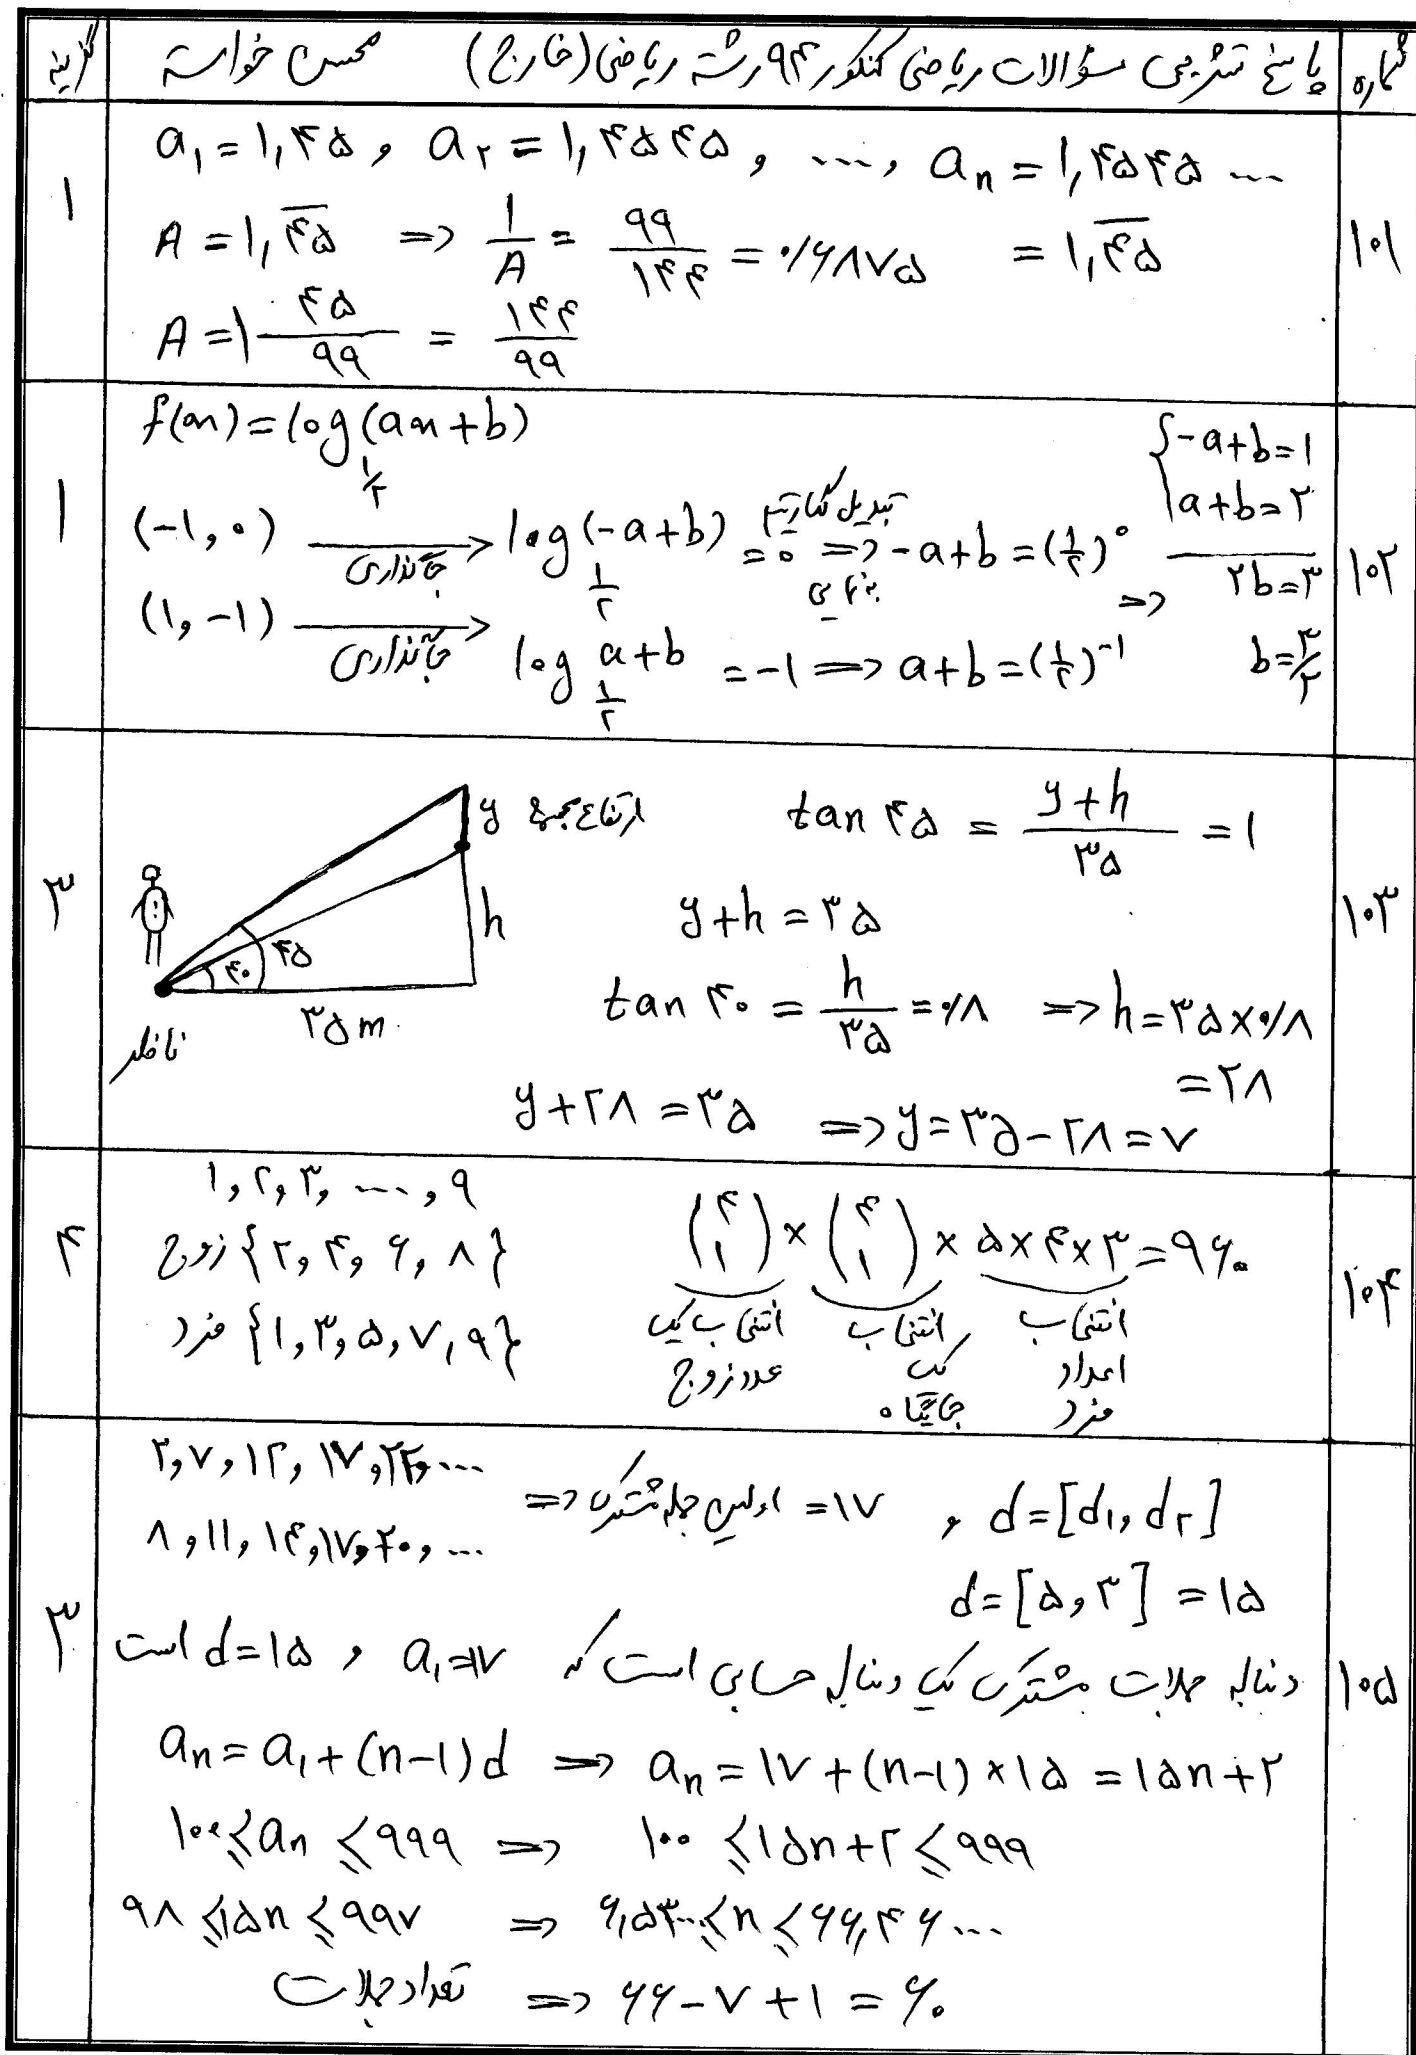 شماره | پاسخ تشریحی سؤالات ریاضی کنکور ۹۴ رشته ریاضی (خارج) محسن خواسته | گزینه
۱۰۱
a₁ = ۱,۴۵ , a₂ = ۱,۴۵۴۵ , ... , aₙ = ۱,۴۵۴۵ ...
A = ۱,\overline{۴۵} => ۱/A = ۹۹/۱۴۴ = ۰/۶۸۷۵ = ۱,\overline{۴۵}
A = ۱ ۴۵/۹۹ = ۱۴۴/۹۹
۱
۱۰۲
f(x) = log_{۱/۲}(ax+b)
(-۱, ۰) جاگذاری → log_{۱/۲}(-a+b) = ۰ => -a+b = (۱/۲)^۰
تبدیل لگاریتم
(۱, -۱) جاگذاری → log_{۱/۲} a+b = -۱ => a+b = (۱/۲)^{-۱}
=> { -a+b=۱
a+b=۲
۲b=۳
b=۳/۲
۱
۱۰۳
y ارتفاع مجسمه
h
۴۰ ۴۵
۳۵ m
ناظر
tan ۴۵ = (y+h)/۳۵ = ۱
y+h = ۳۵
tan ۴۰ = h/۳۵ = ۰/۸ => h = ۳۵×۰/۸
= ۲۸
y+۲۸ = ۳۵ => y = ۳۵-۲۸ = ۷
۳
۱۰۴
۱, ۲, ۳, ..., ۹
زوج {۲, ۴, ۶, ۸}
فرد {۱, ۳, ۵, ۷, ۹}
(۴ ۱) × (۴ ۱) × ۵×۴×۳ = ۹۶۰
انتخاب یک عدد زوج
انتخاب یک جایگاه
انتخاب اعداد فرد
۴
۱۰۵
۲, ۷, ۱۲, ۱۷, ۲۲, ...
۸, ۱۱, ۱۴, ۱۷, ۲۰, ...
=> اولین جمله مشترک = ۱۷ , d=[d₁, d₂]
d=[۵, ۳] = ۱۵
دنباله جملات مشترک یک دنباله حسابی است که a₁=۱۷ , d=۱۵ است
aₙ = a₁+(n-۱)d => aₙ = ۱۷+(n-۱)×۱۵ = ۱۵n+۲
۱۰۰ ≤ aₙ ≤ ۹۹۹ => ۱۰۰ ≤ ۱۵n+۲ ≤ ۹۹۹
۹۸ ≤ ۱۵n ≤ ۹۹۷ => ۶,۵۳... ≤ n ≤ ۶۶,۴۶...
تعداد جملات => ۶۶-۷+۱ = ۶۰
۳